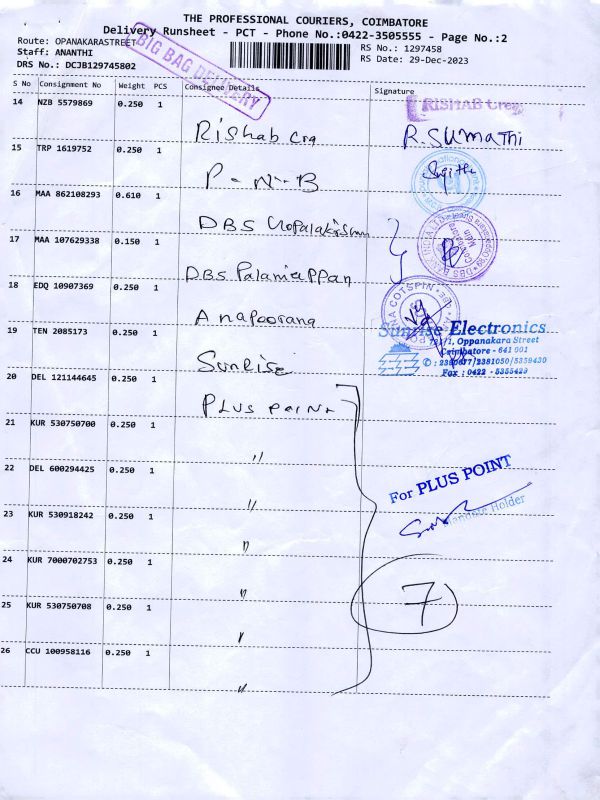 THE PROFESSIONAL COURIERS, COIMBATORE
Delivery Runsheet - PCT - Phone No.:0422-3505555 - Page No.:2
Route: OPANAKARASTREET
RS No.: 1297458
Staff: ANANTHI
RS Date: 29-Dec-2023
DRS No.: DCJB129745802
BIG BAG DELIVERY
S No Consignment No Weight PCS Consignee Details Signature
14 NZB 5579869 0.250 1 Rishab Crq RISHAB R.SUMATHI
15 TRP 1619752 0.250 1 P-N-B
16 MAA 862108293 0.610 1 DBS Gopalakrishnan
17 MAA 107629338 0.150 1 DBS Palaniappan
18 EDQ 10907369 0.250 1 Anapoorana
Sunrise Electronics
Oppanakara Street
Coimbatore - 641 001
Fax : 0422 - 5355429
19 TEN 2085173 0.250 1 Sunrise
20 DEL 121144645 0.250 1 PLUS Point
21 KUR 530750700 0.250 1 "
22 DEL 600294425 0.250 1 "
For PLUS POINT
Holder
23 KUR 530918242 0.250 1 "
24 KUR 7000702753 0.250 1 "
7
25 KUR 530750708 0.250 1 "
26 CCU 100958116 0.250 1 "